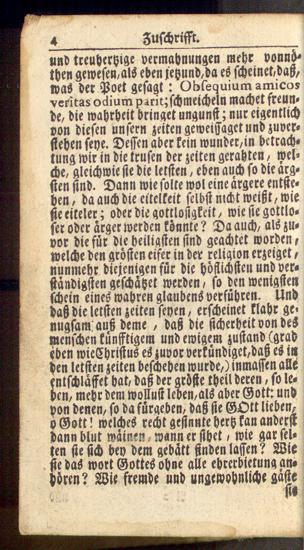 4 Zuschrifft.
und treuhertzige vermahnungen mehr vonnö-
then gewesen, als eben jetzund, da es scheinet, daß,
was der Poet gesagt: Obsequium amicos
veritas odium parit; schmeicheln machet freun-
de, die wahrheit bringet ungunst; nur eigentlich
von diesen unsern zeiten geweissaget und zuver-
stehen seye. Dessen aber kein wunder, in betrach-
tung wir in die trusen der zeiten gerahten, wel-
che, gleichwie sie die letsten, eben auch so die ärg-
sten sind. Dann wie solte wol eine ärgere entste-
hen, da auch die eitelkeit selbst nicht weißt, wie
sie eiteler; oder die gottlosigkeit, wie sie gottlo-
ser oder ärger werden könnte? Da auch, als zu-
vor die für die heiligsten sind geachtet worden,
welche den grösten eifer in der religion erzeiget,
nunmehr diejenigen für die höflichsten und ver-
ständigsten geschätzet werden, so den wenigsten
schein eines wahren glaubens versühren. Und
daß die letsten zeiten seyen, erscheinet klahr ge-
nugsam auß deme, daß die sicherheit von des
menschen künfftigem und ewigem zustand (grad
eben wie Christus es zuvor verkündiget, daß es in
den letsten zeiten beschehen wurde,) inmassen alle
entschläffet hat, daß der gröste theil deren, so le-
ben, mehr dem wollust leben, als aber Gott: und
von denen, so da fürgeben, daß sie GOtt lieben,
o Gott! welches recht gesinnte hertz kan anderst
dann blut wäinen, wann er sihet, wie gar sel-
ten sie sich bey dem gebätt finden lassen? Wie
sie das wort Gottes ohne alle ehrerbietung an-
hören? Wie fremde und ungewohnliche gäste
sie